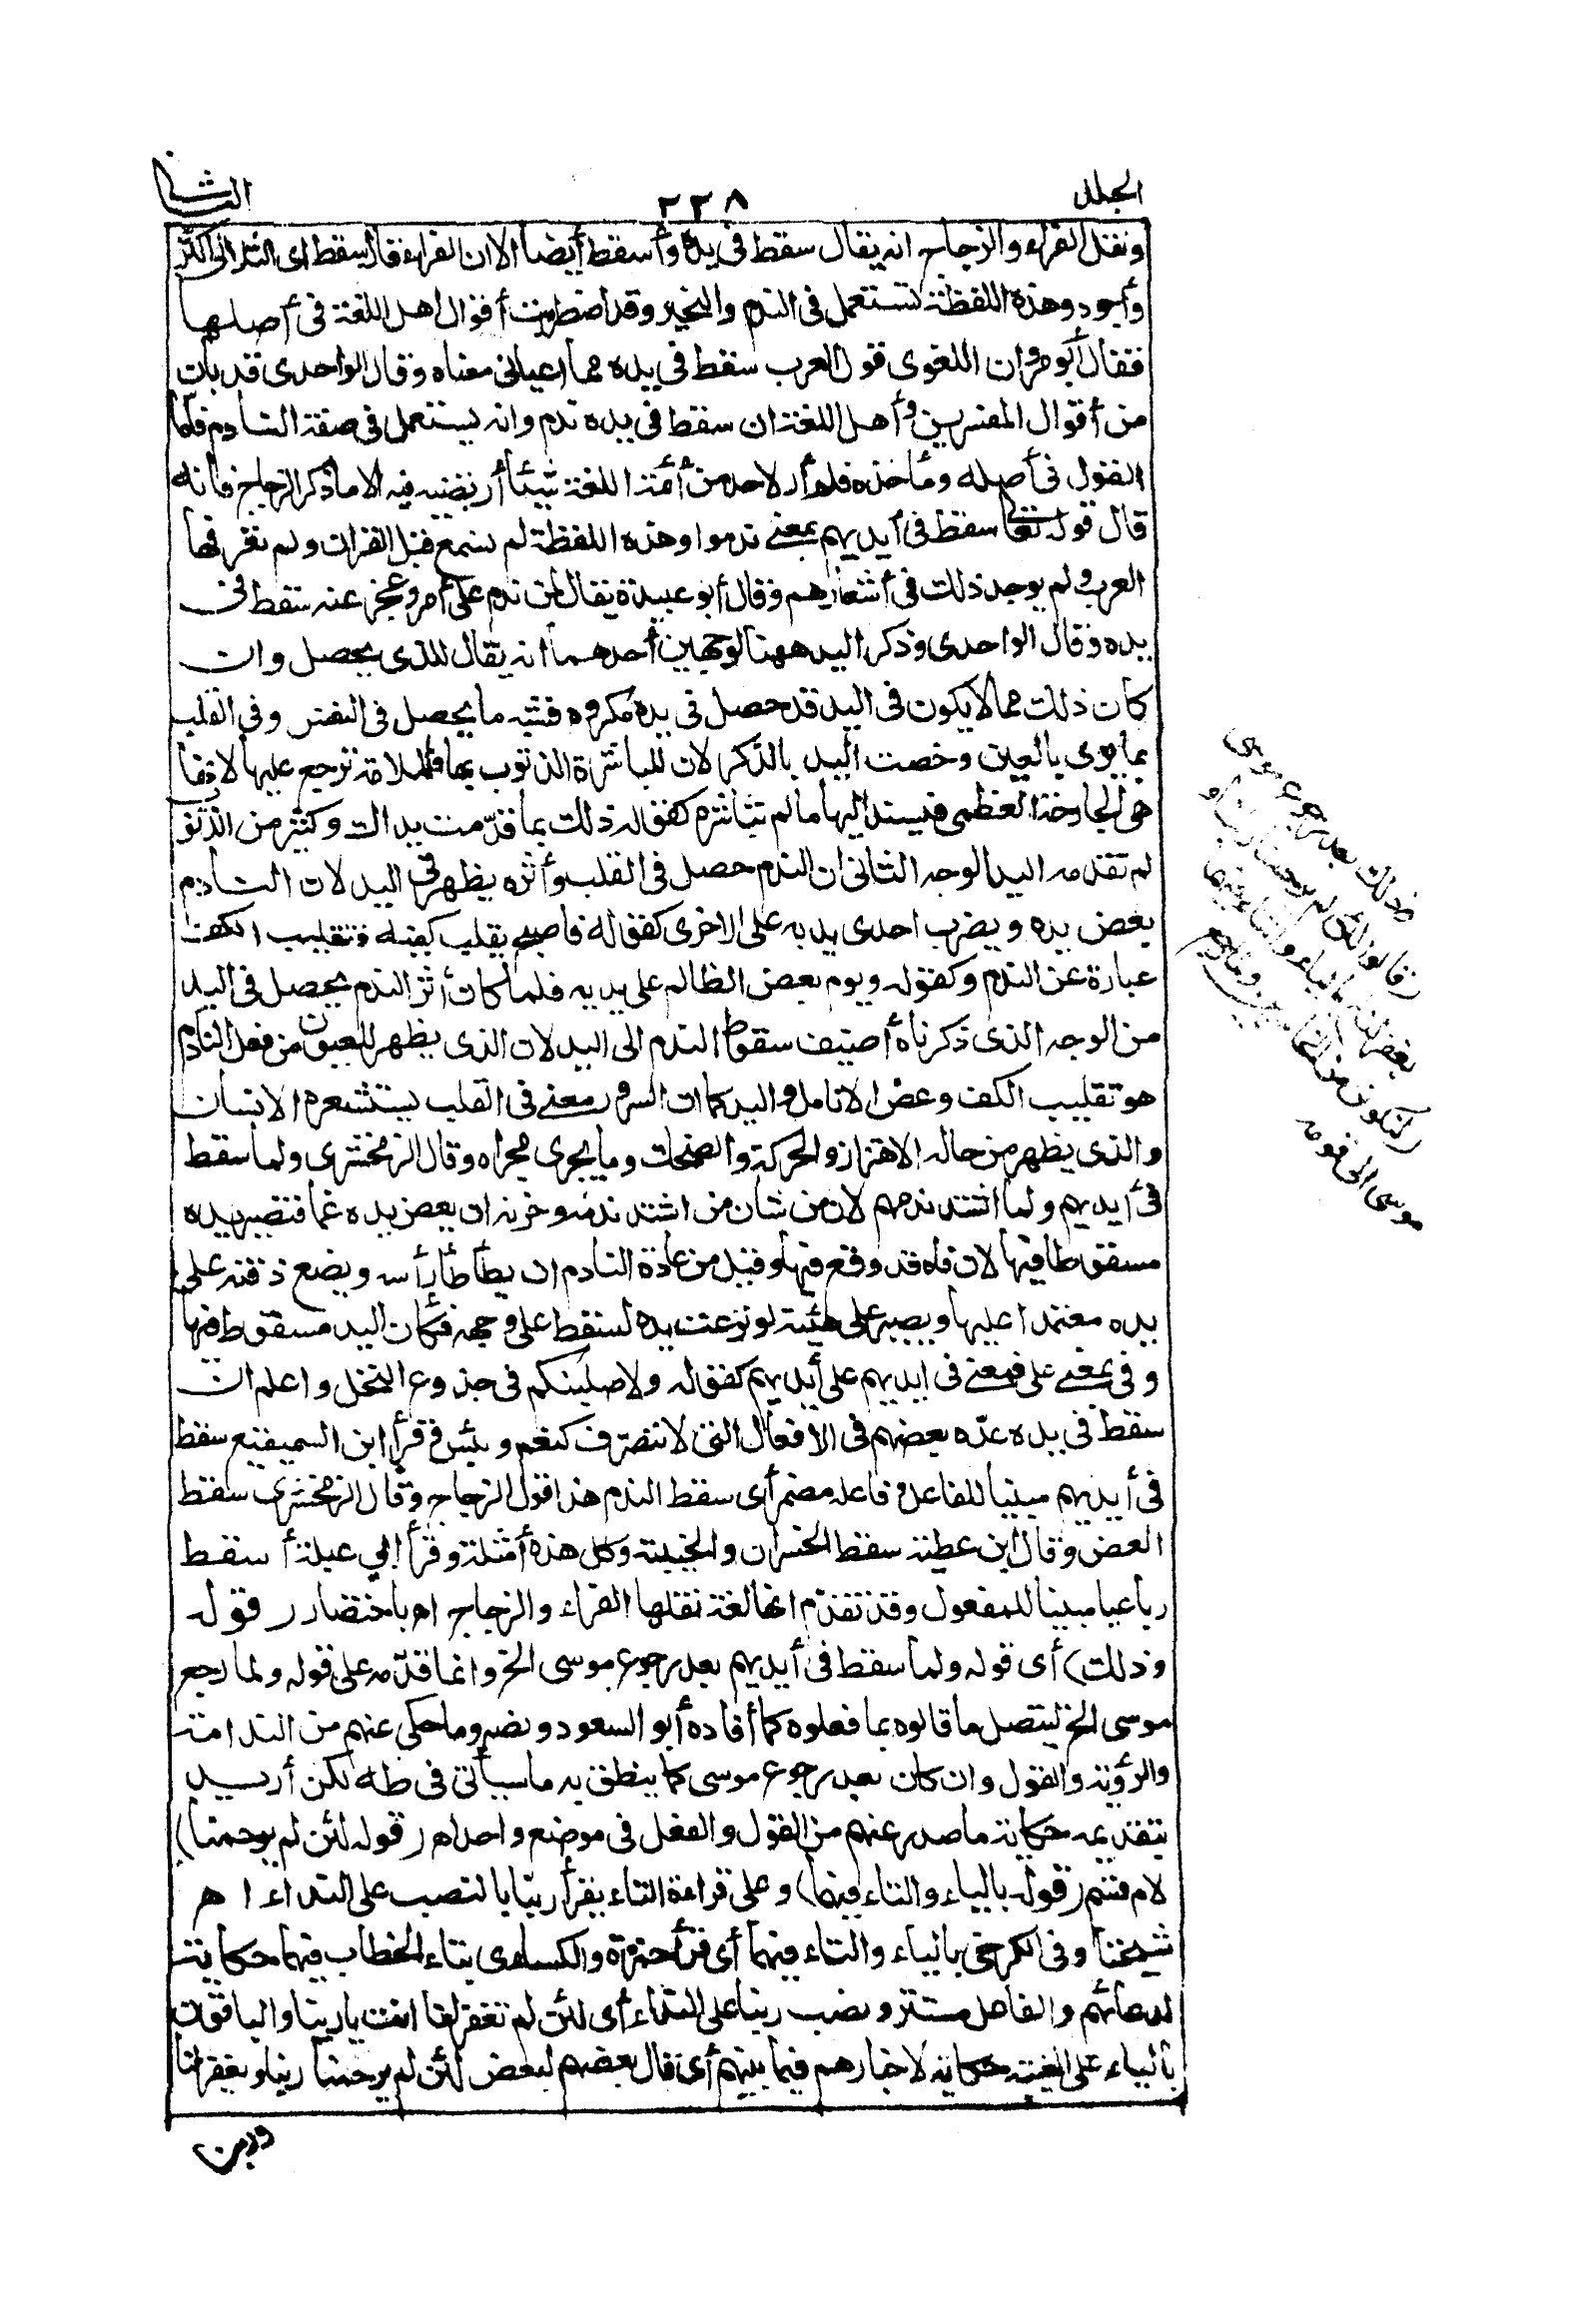 الجلد
٢٣٨
الثا
ونقل الفراء والزجاج انه يقال سقط فى يده وأسقط أيضا الا ان الفراء قال سقط اى الثلاثى اكثر
وأجود وهذه اللفظة تستعمل فى الندم والتحير وقد اضطربت أقوال اهل اللغة فى أصلها
فقال أبو مروان اللغوى قول العرب سقط فى يده مما اعيانى معناه وقال الواحدى قد بان
من أقوال المفسرين وأهل اللغة ان سقط فى يده ندم وانه يستعمل فى صفة النادم فأما
القول فى أصله ومأخذه فلم أر لاحد من أئمة اللغة شيئا أرتضيه فيه الا ما ذكر الزجاج فانه
قال قوله تعالى سقط فى أيديهم بمعنى ندموا وهذه اللفظة لم تسمع قبل القران ولم تعرفها
العرب ولم يوجد ذلك فى أشعارهم وقال أبو عبيدة يقال لمن ندم على أمر وعجز عنه سقط فى
يده وقال الواحدى وذكر اليد ههنا لوجهين أحدهما انه يقال للذى يحصل وان
كان ذلك مما لا يكون فى اليد قد حصل فى يده مكروه فشبه ما يحصل فى النفس وفى القلب
بما يرى بالعين وخصت اليد بالذكر لان المباشرة الذنوب بها فالملامة ترجع عليها لانها
هى الجارحة العظمى فيسند اليها ما لم تباشره كقوله ذلك بما قدمت يداك وكثير من الذنوب
لم تقدمه اليد الوجه الثانى ان الندم حصل فى القلب وأثره يظهر فى اليد لان النادم
يعض يده ويضرب احدى يديه على الاخرى كقوله فاصبح يقلب كفيه فتقليب الكف
عبارة عن الندم وكقوله ويوم يعض الظالم على يديه فلما كان أثر الندم يحصل فى اليد
من الوجه الذى ذكرناه أضيف سقوط الندم الى اليد لان الذى يظهر للعيون من فعل النادم
هو تقليب الكف وعض الانامل واليد كما ان السرور معنى فى القلب يستشعره الانسان
والذى يظهر من حاله الاهتزاز والحركة والضحك وما يجرى مجراه وقال الزمخشرى ولما سقط
فى أيديهم ولما اشتد ندمهم لان من شان من اشتد ندمه وحزنه ان يعض يده غما فتصير يده
مسقوطا فيها لان فاه قد وقع فيها وقيل من عادة النادم ان يطأطأ رأسه ويضع ذقنه على
يده معتمدا عليها ويصير على هيئة لو نزعت يده لسقط على وجهه فكان اليد مسقوط فيها
وفى بمعنى على فمعنى فى ايديهم على أيديهم كقوله ولاصلبنكم فى جذوع النخل واعلم ان
سقط فى يده عدّه بعضهم فى الافعال التى لا تتصرف كنعم وبئس وقرأ ابن السميفع سقط
فى أيديهم مبنيا للفاعل وفاعله مضمر أى سقط الندم هذا قول الزجاج وقال الزمخشرى سقط
العض وقال ابن عطية سقط الخسران والخيبة وكل هذه أمثلة وقرأ ابى عبلة أسقط
رباعيا مبنيا للمفعول وقد تقدّم انها لغة نقلها الفراء والزجاج اه باختصار (قوله
وذلك) أى قوله ولما سقط فى أيديهم بعد رجوع موسى الخ وانما قدّمه على قوله ولما رجع
موسى الخ ليتصل ما قالوه بما فعلوه كما أفاده أبو السعود ونصه وما حكى عنهم من الندامة
والرؤية والقول وان كان بعد رجوع موسى كما ينطق به ما سيأتى فى طه لكن أريد
بتقديمه حكاية ما صدر عنهم من القول والفعل فى موضع واحد اه (قوله لئن لم يرحمنا)
لام قسم (قوله بالياء والتاء فيهما) وعلى قراءة التاء يقرأ ربنا بالنصب على النداء ا ه
شيخنا وفى الكرخى بالياء والتاء فيهما أى قرأ حمزة والكسائى بتاء الخطاب فيهما حكاية
لدعائهم والفاعل مستتر ونصب ربنا على النداء أى لئن لم تغفر لنا انت يا ربنا والباقون
بالياء على الغيبة حكاية لاخبارهم فيما بينهم أى قال بعضهم لبعض لئن لم يرحمنا ربنا ويغفر لنا
وذلك بعد رجوع موسى
(قالوا لئن لم يرحمنا ربنا و
يغفر لنا) بالياء والتاء فيهما
(لنكونن من الخاسرين ولما رجع
موسى الى قومه